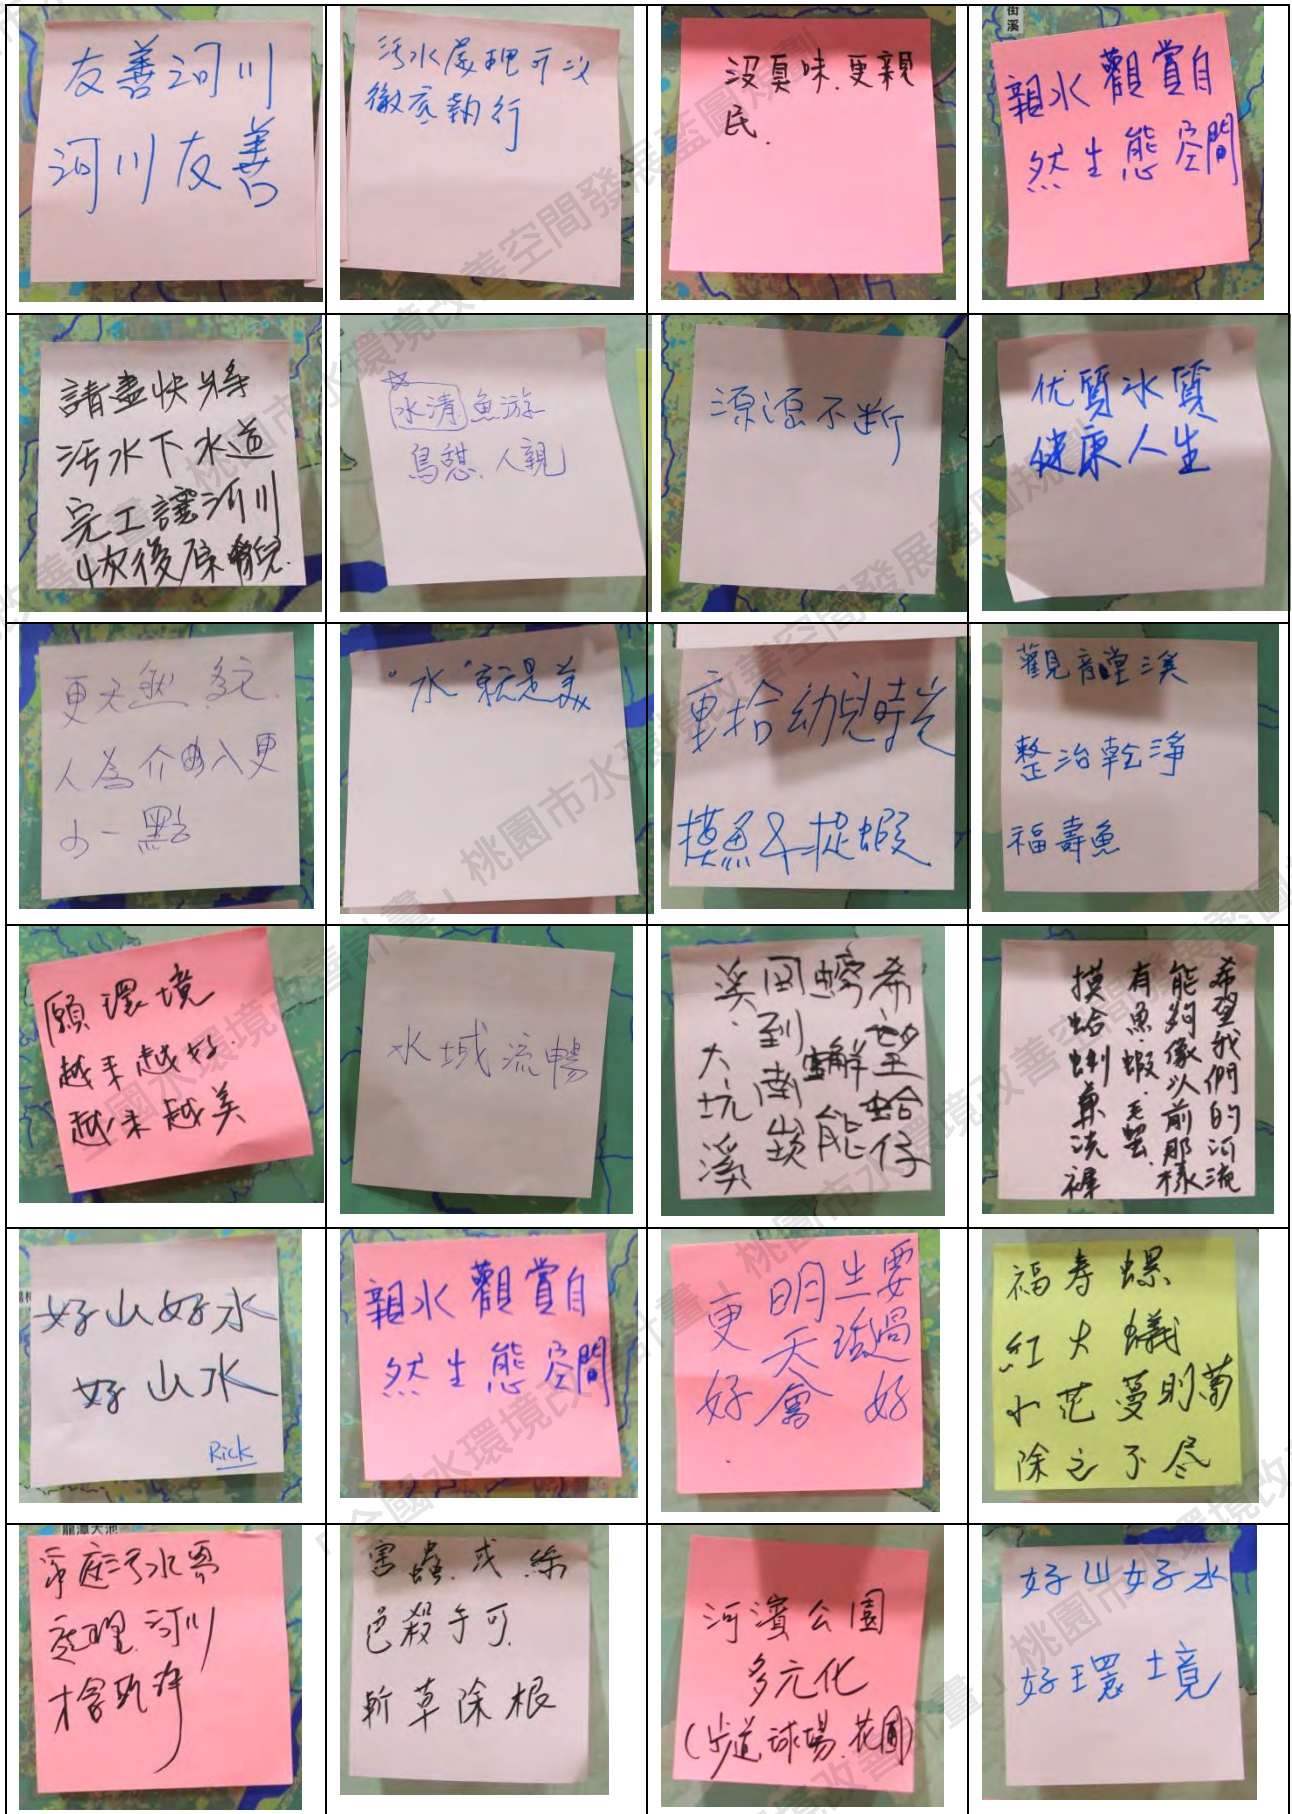 友善河川
河川友善
污水處理可以
徹底執行
沒臭味.更親
民.
街
溪
親水觀賞自
然生態空間
請盡快將
污水下水道
完工讓河川
恢復原貌.
水清魚游
鳥憩.人親
源源不斷
优質水質
健康人生
更天然、多元、
人為介入更
小一點
"水"就是美
重拾幼兒時光
摸魚&捉蝦
觀音堂溪
整治乾淨
福壽魚
願環境
越來越好.
越來越美
水域流暢
希望蛤仔
螃蟹能
回到南崁
溪.大坑溪
希望我們的河流
能夠像以前那樣
有魚.蝦.毛蟹.
摸蛤蜊兼洗褲
好山好水
好山水
Rick
親水觀賞自
然生態空間
要過好
生活
明天會
更好.
福寿螺
紅火蟻
小花蔓明菊
除之不尽
龍潭大池
家庭污水要
處理.河川
才會乾净
害蟲.或綠
色殺手可.
斬草除根
河濱公園
多元化
(步道.球場.花圃)
好山好水
好環境
「全國水環境改善計畫」桃園市水環境改善空間發展藍圖規劃